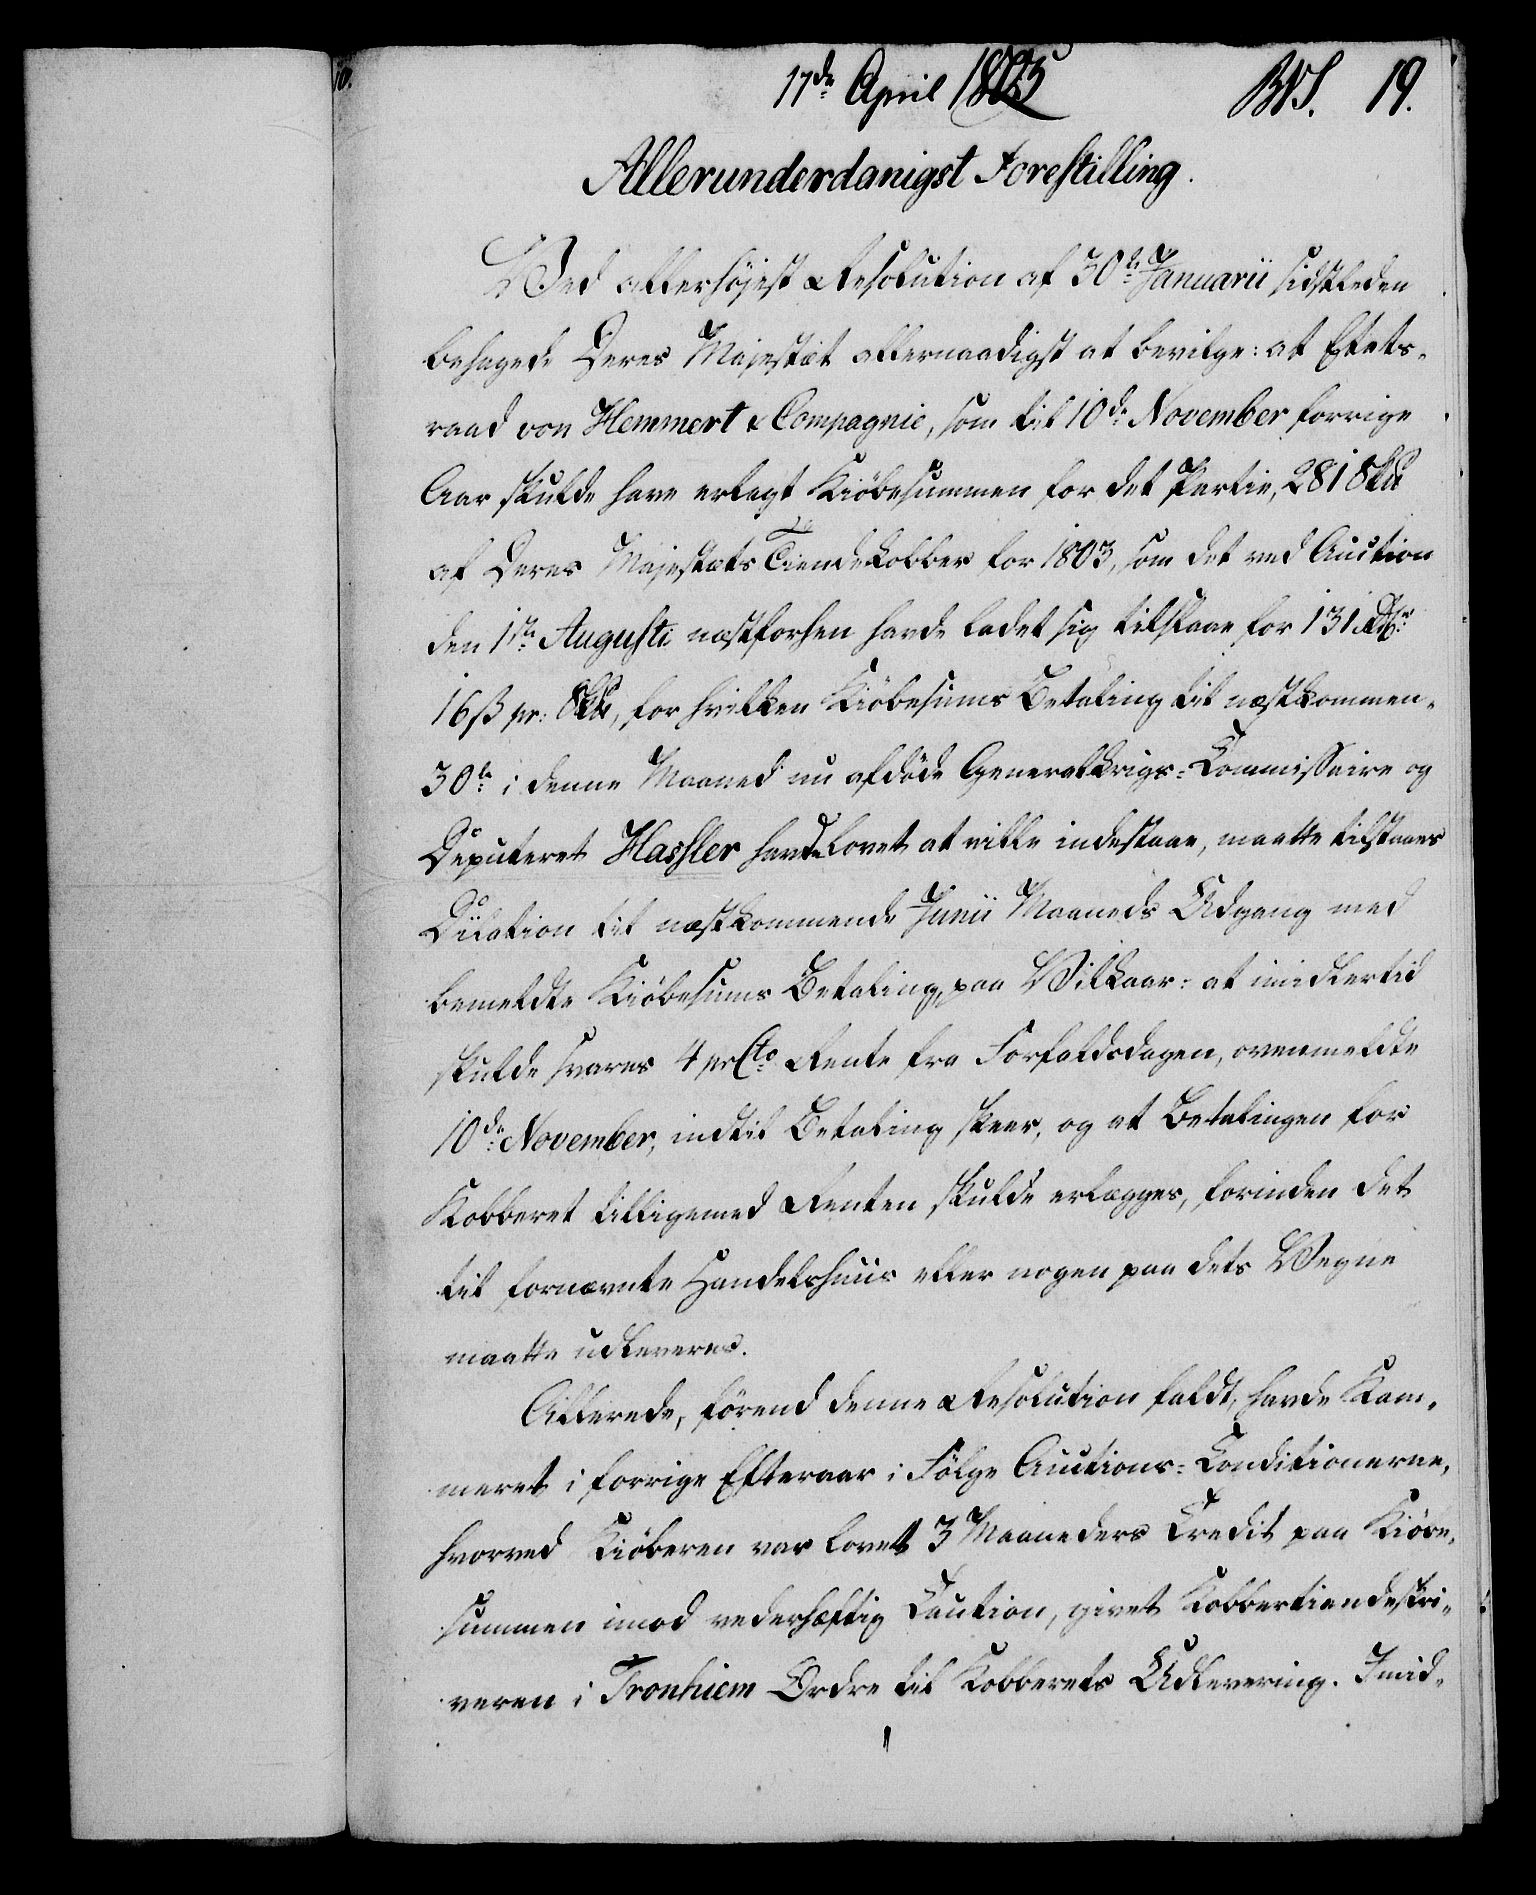 17de April 1805 BVS. 19.
Allerunderdanigst Forestilling.
Ved allerhöjest Resolution af 30te Januarii sidstleden
behagede Deres Majestæt allernaadigst at bevilge: at Etats-
raad von Hemmert & Compagnie, som til 10de November forrige
Aar skulde have erlagt Kiöbesummen for det Partie, 281 Sk℔
af Deres Majestæts Tiendekobber for 1803, som det ved Auction
den 1ste Augusti næstforhen havde ladet sig tilslaae for 131 Rdr
16 ß pr: Sk℔, for hvilken Kiöbesums Betaling til næstkommen-
30te i denne Maaned nu afdöde Generalkrigs-Commissaire og
Deputeret Hassler havde lovet at ville indestaae, maatte tilstaaes
Dilation til næstkommende Junii Maaneds Udgang med
bemeldte Kiöbesums Betaling, paa Vilkaar: at imidlertid
skulde svares 4 prCto Rente fra Forfaldsdagen, ovenmeldte
10de November, indtil Betaling skeer, og at Betalingen for
Kobberet tilligemed Renten skulde erlægges, forinden det
til fornævnte Handelshuus eller nogen paa dets Vegne
maatte udleveres.
Allerede, förend denne Resolution faldt, havde Kam-
meret i forrige Efteraar i Fölge Auctions-Conditionerne,
hvorved Kiöberen var lovet 3 Maaneders Credit paa Kiöbe-
summen imod vederhæftig Caution, givet Kobbertiendeskri-
veren i Tronhiem Ordre til Kobberets Udlevering. Imid-